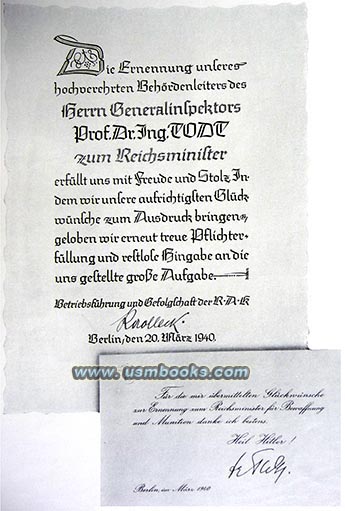 Die Ernennung unseres
hochverehrten Behördenleiters des
Herrn Generalinspektors
Prof. Dr. Ing. TODT
zum Reichsminister
erfüllt uns mit Freude und Stolz. In-
dem wir unsere aufrichtigsten Glück-
wünsche zum Ausdruck bringen,
geloben wir erneut treue Pflichter-
füllung und restlose Hingabe an die
uns gestellte große Aufgabe.
Betriebsführung und Gefolgschaft der R·A·K
Berlin, den 20. März 1940.
www.usmbooks.com
Für die mir übermittelten Glückwünsche
zur Ernennung zum Reichsminister für Bewaffnung
und Munition danke ich bestens.
Heil Hitler!
Berlin, im März 1940